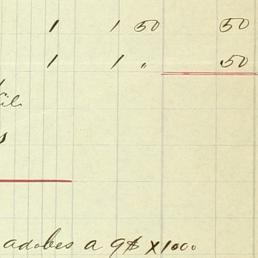 1 1 50 50
1 1 " 50
adobes a 9$ x 1000